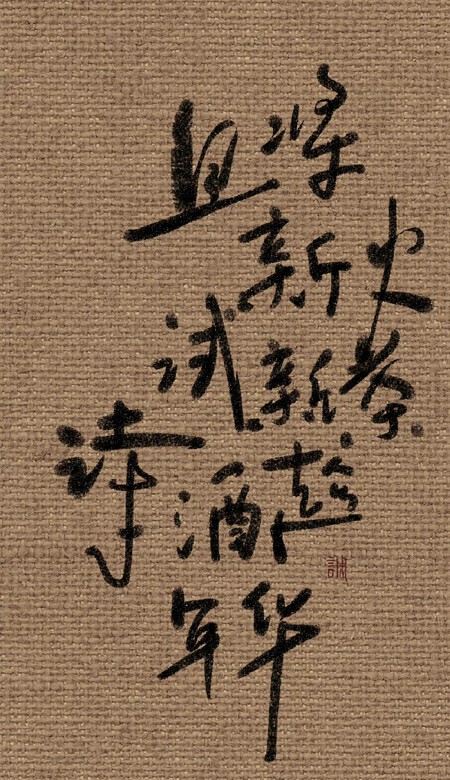 且将新火
试新茶
诗酒趁
年华